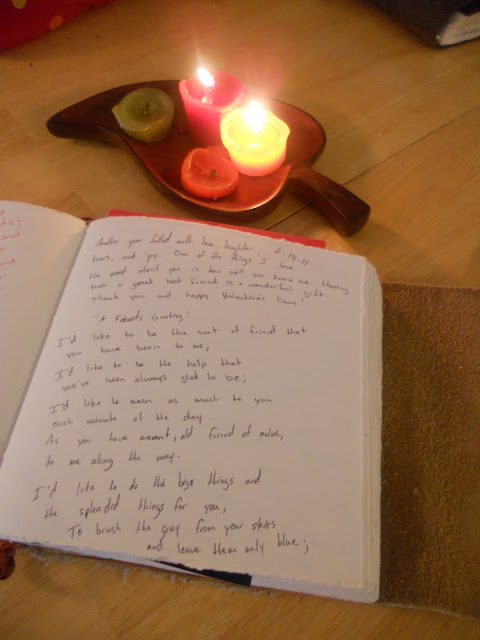 Another year filled with love, laughter, 2-14-11
tears, and joy. One of the things I love
the most about you is how well you know me. Having
such a great best friend is a wonderful gift.
Thank you and happy Valentine's Day!
"A Friend's Greeting"
I'd like to be the sort of friend that
you have been to me;
I'd like to be the help that
you've been always glad to be;
I'd like to mean as much to you
each minute of the day
As you have meant, old friend of mine,
to me along the way.
I'd like to do the big things and
the splendid things for you,
To brush the gray from your skies
and leave them only blue;